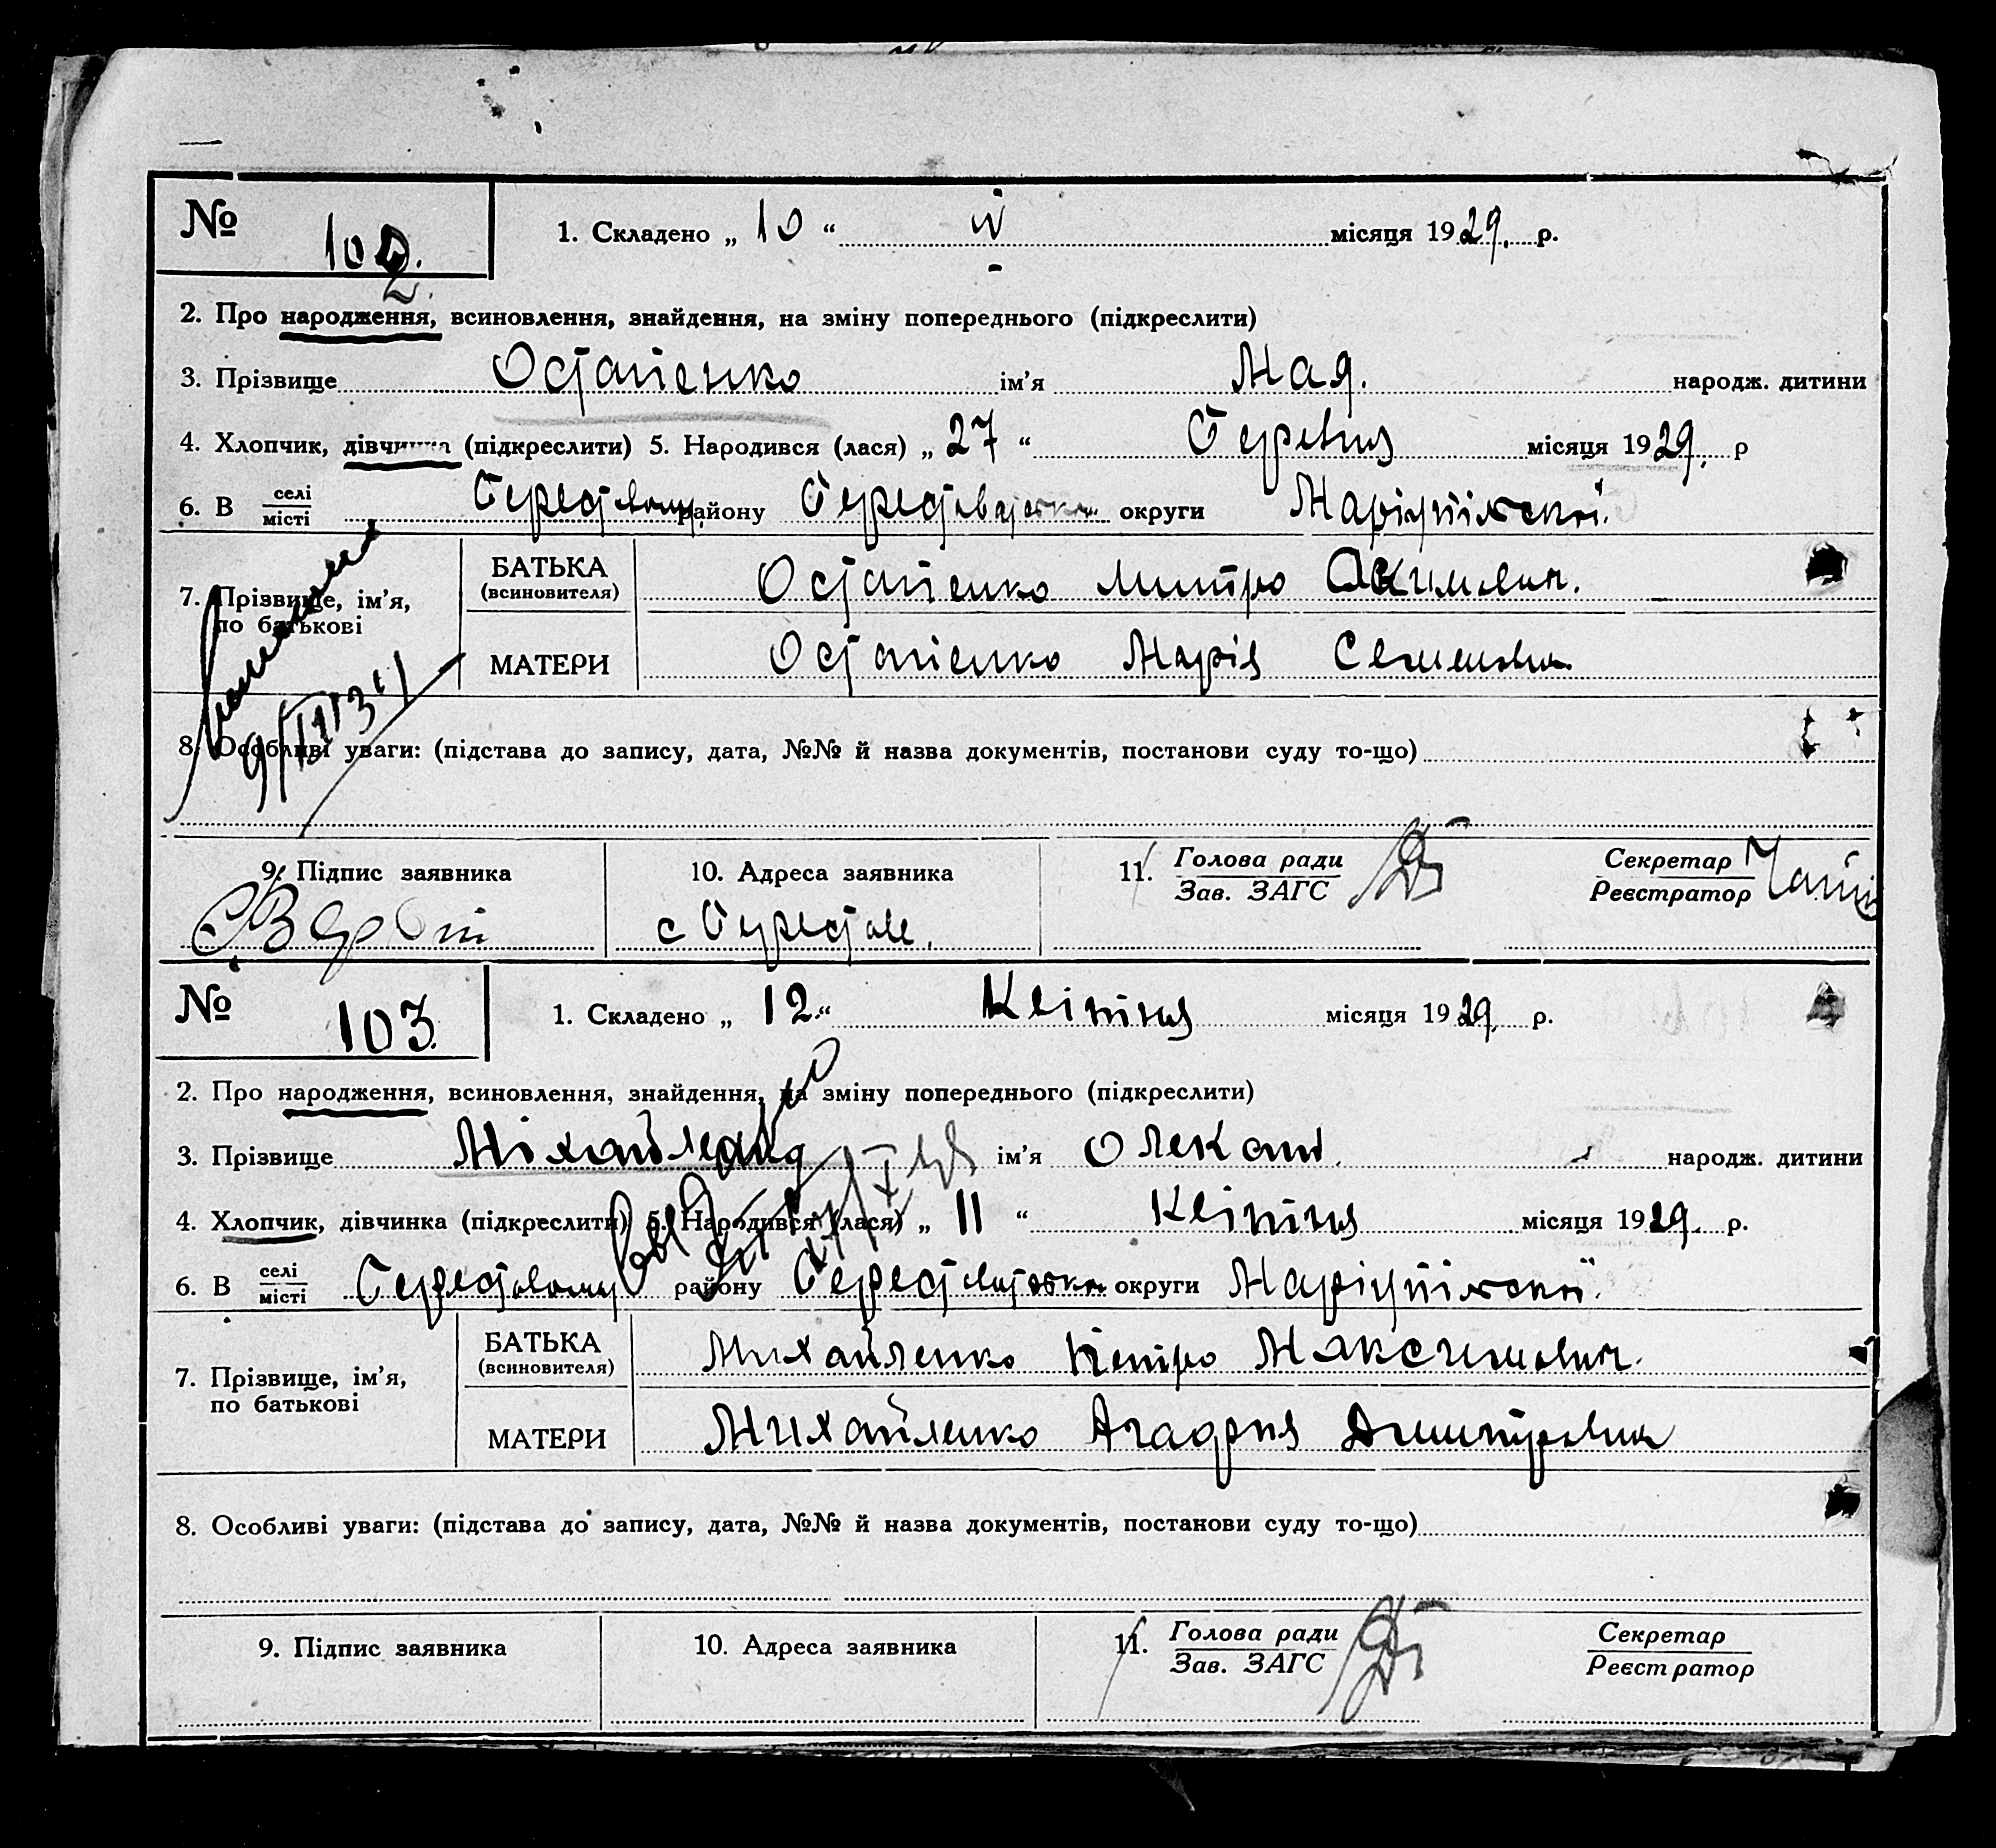 № 102.
1. Складено „ 10 “ V місяця 1929. р.
2. Про народження, всиновлення, знайдення, на зміну попереднього (підкреслити)
3. Прізвище Остапенко ім’я Мая. народж. дитини
4. Хлопчик, дівчинка (підкреслити) 5. Народився (лася) „ 27 “ місяця 1929. р
6. В селі місті району округи Маріупільскої.
7. Прізвище, ім’я, по батькові
БАТЬКА (всиновителя) Остапенко Митро Акимович.
МАТЕРИ Остапенко Марія Семеновна
8. Особливі уваги: (підстава до запису, дата, №№ й назва документів, постанови суду то-що)
9. Підпис заявника 10. Адреса заявника 11. Голова ради Зав. ЗАГС Секретар Реєстратор
№ 103.
1. Складено „ 12 “ Квітня місяця 1929. р.
2. Про народження, всиновлення, знайдення, на зміну попереднього (підкреслити)
3. Прізвище ім’я народж. дитини
4. Хлопчик, дівчинка (підкреслити) 5. Народився (лася) „ 11 “ Квітня місяця 1929. р.
6. В селі місті району округи Маріупільскої.
7. Прізвище, ім’я, по батькові
БАТЬКА (всиновителя) Михайленко Петро Максимович.
МАТЕРИ Михайленко Дмитровна
8. Особливі уваги: (підстава до запису, дата, №№ й назва документів, постанови суду то-що)
9. Підпис заявника 10. Адреса заявника 11. Голова ради Зав. ЗАГС Секретар Реєстратор